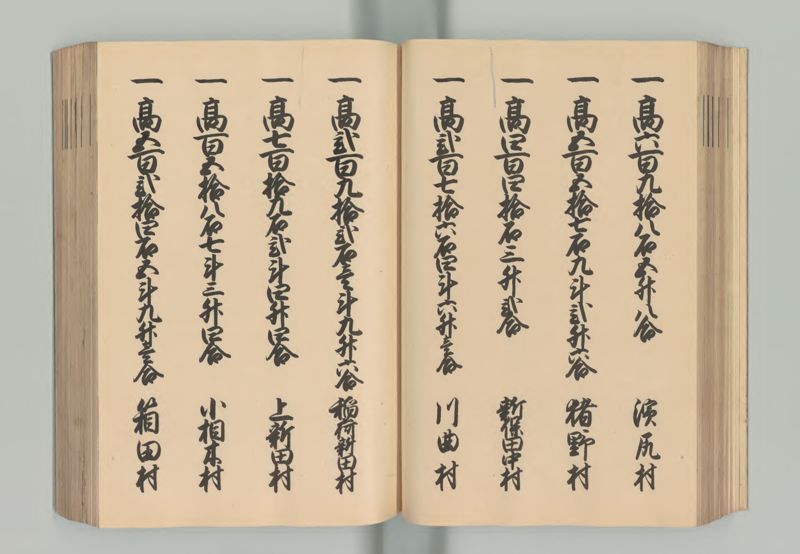 一高六百九拾八石五升八合 濱尻村
一高五百五拾七石九斗弐升六合 猪野村
一高四百四拾石三升弐合 新保田中村
一高弐百七拾六石四斗六升壱合 川曲村
一高弐百九拾弐石壱斗九升六合 稲荷新田村
一高七百拾九石弐斗四升四合 上新田村
一高百五拾八石七斗三升四合 小相木村
一高五百弐拾四石五斗九升壱合 箱田村